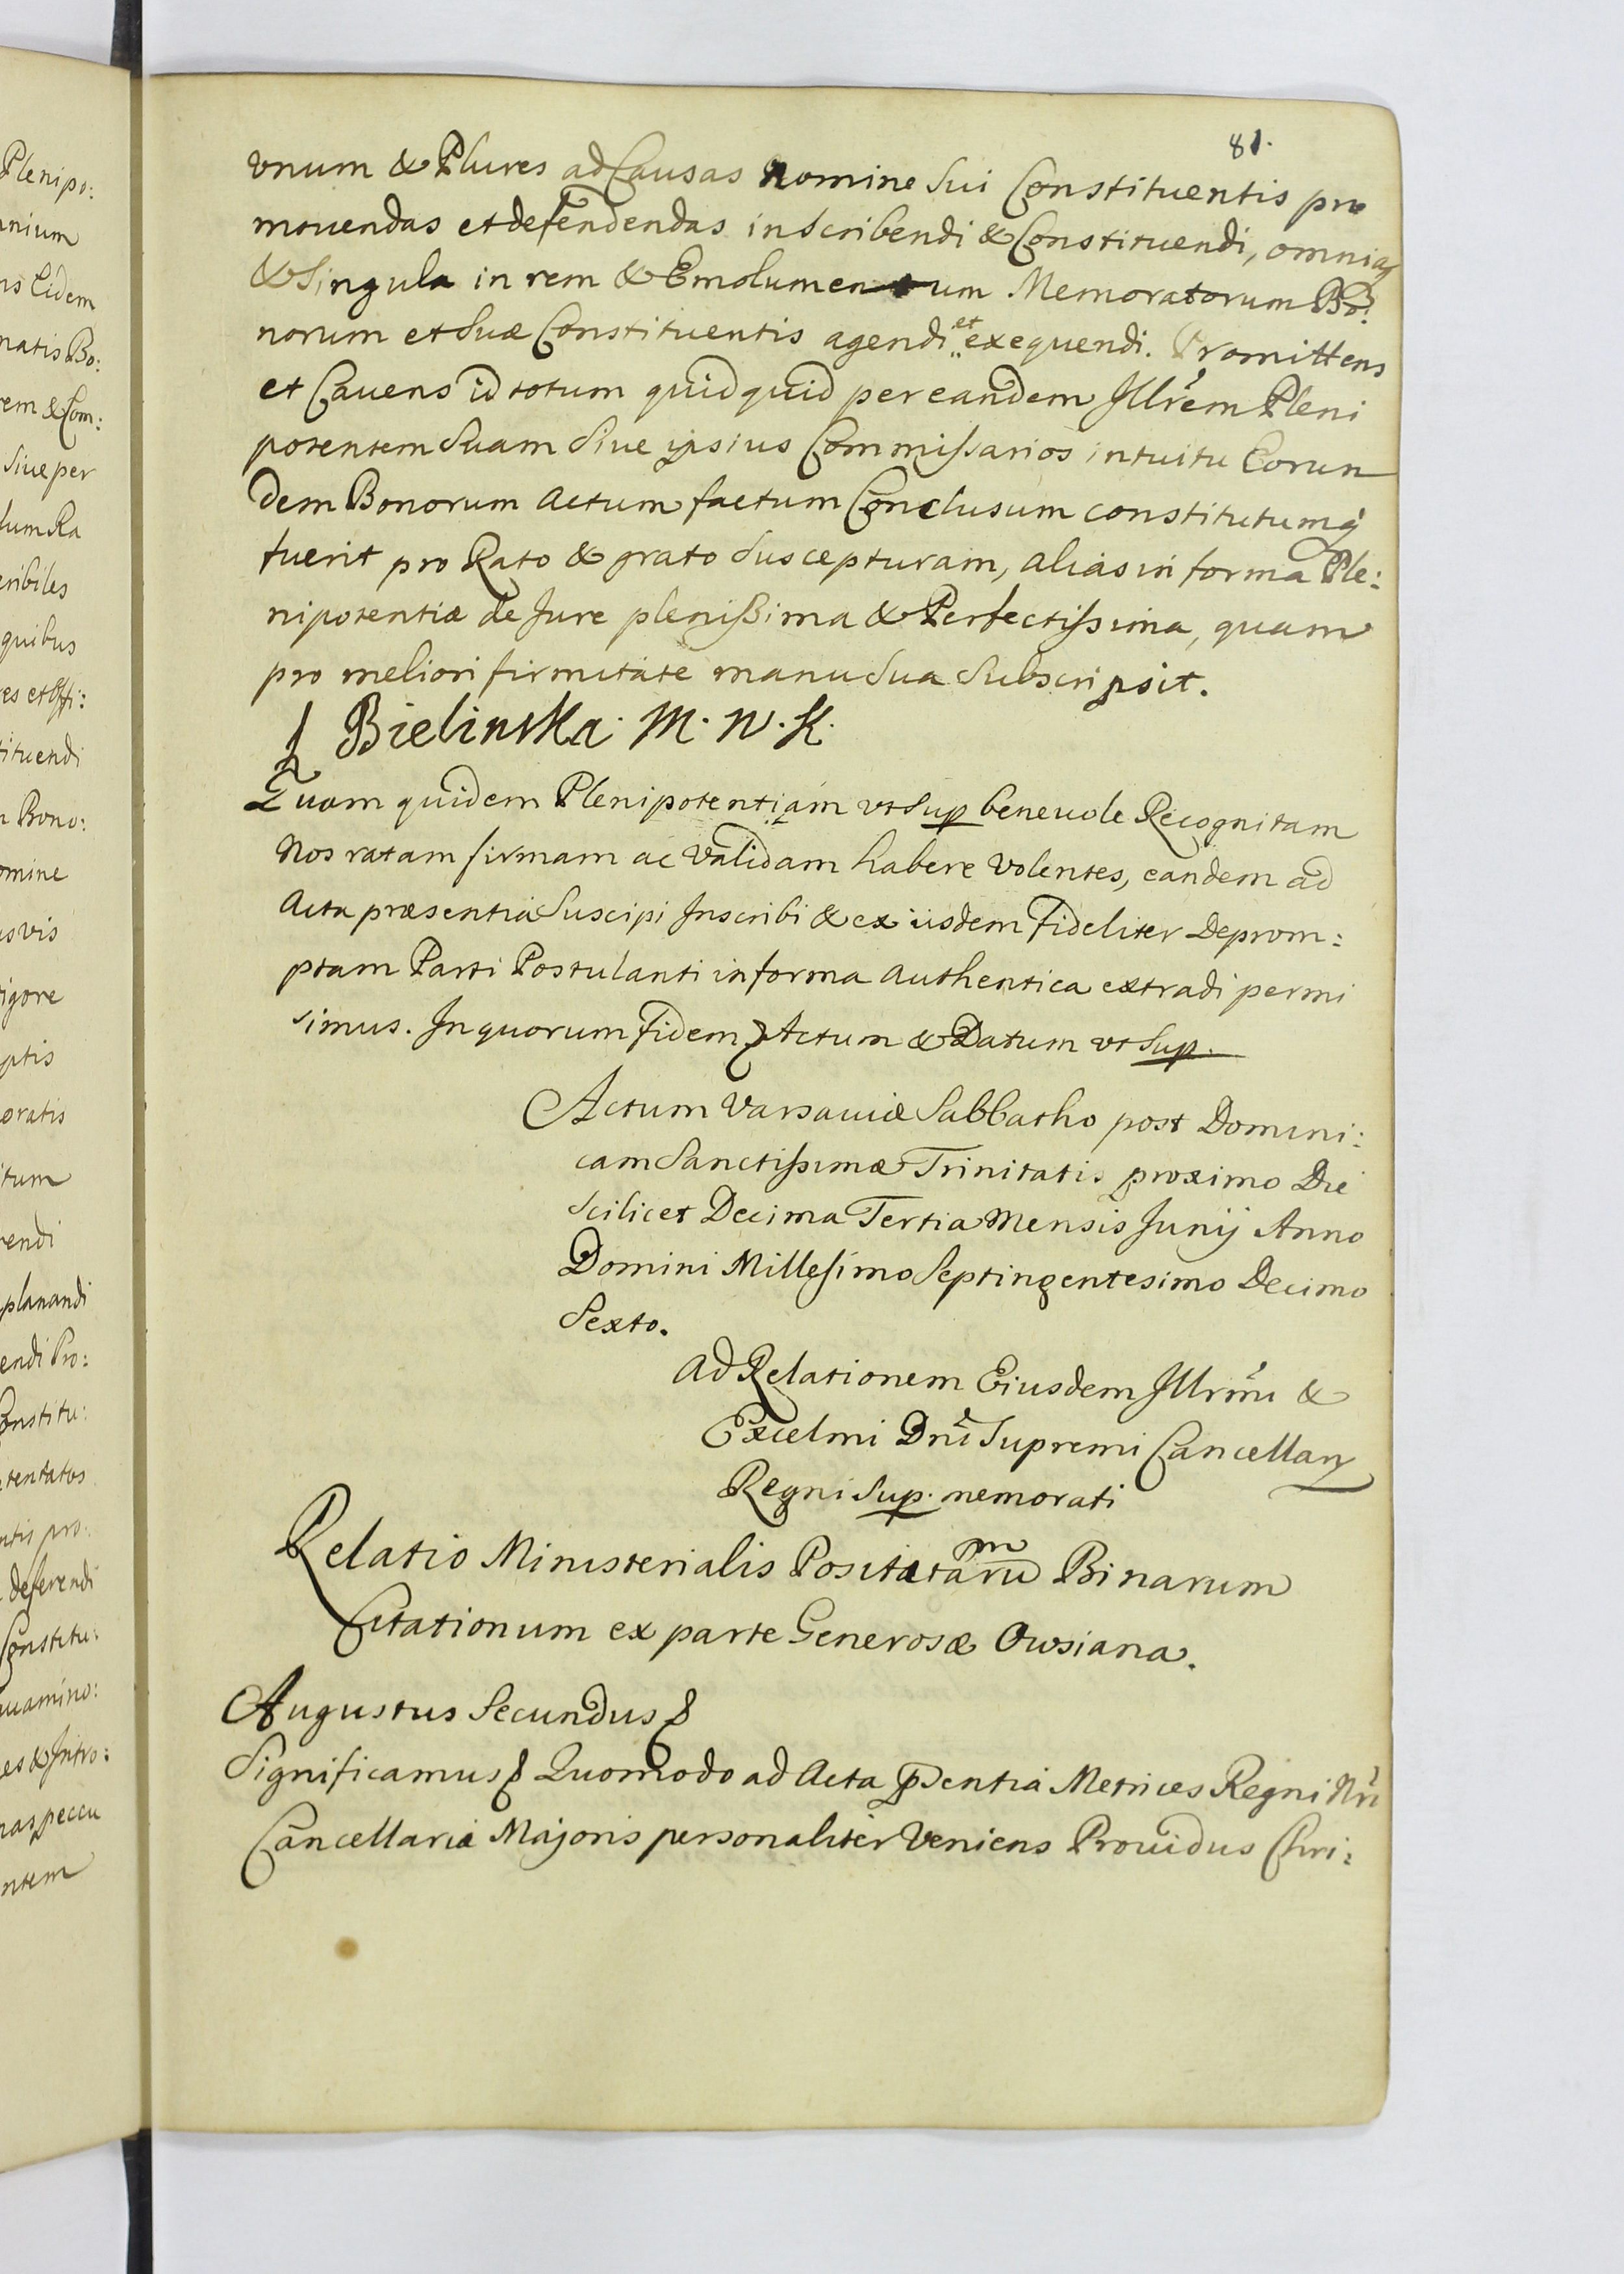 Plenipo:
nium
ns Eidem
natis Bo:
rem & Com:
Siue per
lum Ra
eribiles
quibus
es et Offi:
tituendi
n Bono:
omine
usvis
igore
ptis
oratis
tum
endi
planandi
endi Pro:
Constitu:
tentatos
ntis pro:
deferendi
Constitu:
uamino:
es & Intro:
nas peccu
ntem
81.
vnum & Plures ad Causas nomine Sui Constituentis pro
mouendas et defendendas inscribendi & Constituendi, omniaq
& Singula in rem & Emolumentum Memoratorum Bo:
norum et Suæ Constituentis agendi et exequendi. Promittens
et Cauens id totum quidquid per eandem Illrem Pleni
potentem Suam Siue ipsius Commissarios intuitu Eorun
dem Bonorum Actum factum Conclusum constitutumq
fuerit pro Rato & grato Suscepturam, alias in forma Ple:
nipotentiæ de Jure plenissima & Perfectissima, quam
pro meliori firmitate manu Sua Subscripsit.
J Bielinska. M. W. K.
Quam quidem Plenipotentiam vt Sup benevole Recognitam
Nos ratam firmam ac validam habere volentes, eandem ad
Acta præsentia Suscipi Inscribi & ex iisdem fideliter Deprom:
ptam Parti Postulanti in forma authentica extradi permi
simus. In quorum fidem Actum & Datum vt Sup.
Actum Varsauiæ Sabbatho post Domini:
cam Sanctissimæ Trinitatis proximo Die
Scilicet Decima Tertia Mensis Junij Anno
Domini Millesimo Septingentesimo Decimo
Sexto.
Ad Relationem Eiusdem Illrmi &
Excelmi Dni Supremi Cancellarij
Regni Sup. memorati
Relatio Ministerialis Positatarum Binarum
Citationum ex parte Generosæ Owsiana.
Augustus Secundus
Significamus Quomodo ad Acta psentia Metrices Regni Nri
Cancellariæ Majoris personaliter veniens Prouidus Chri: